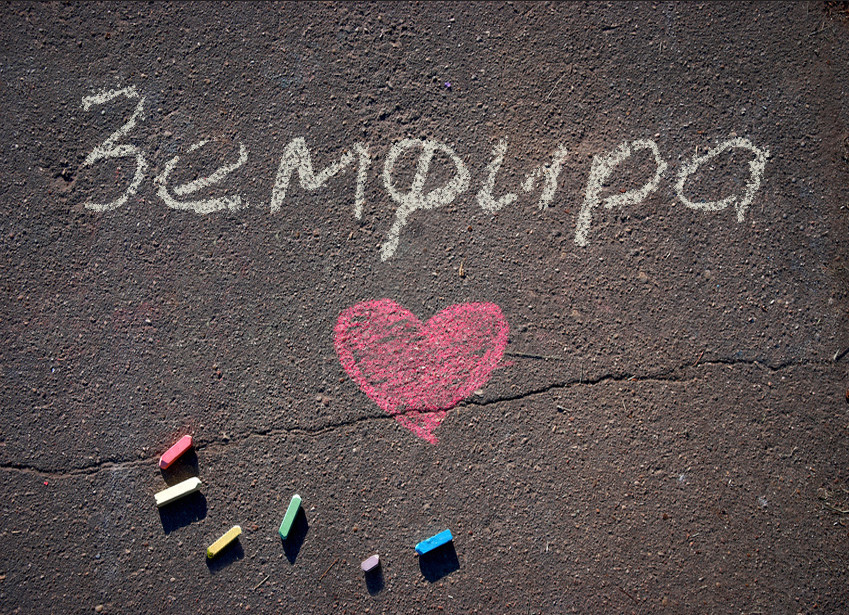 Земфира